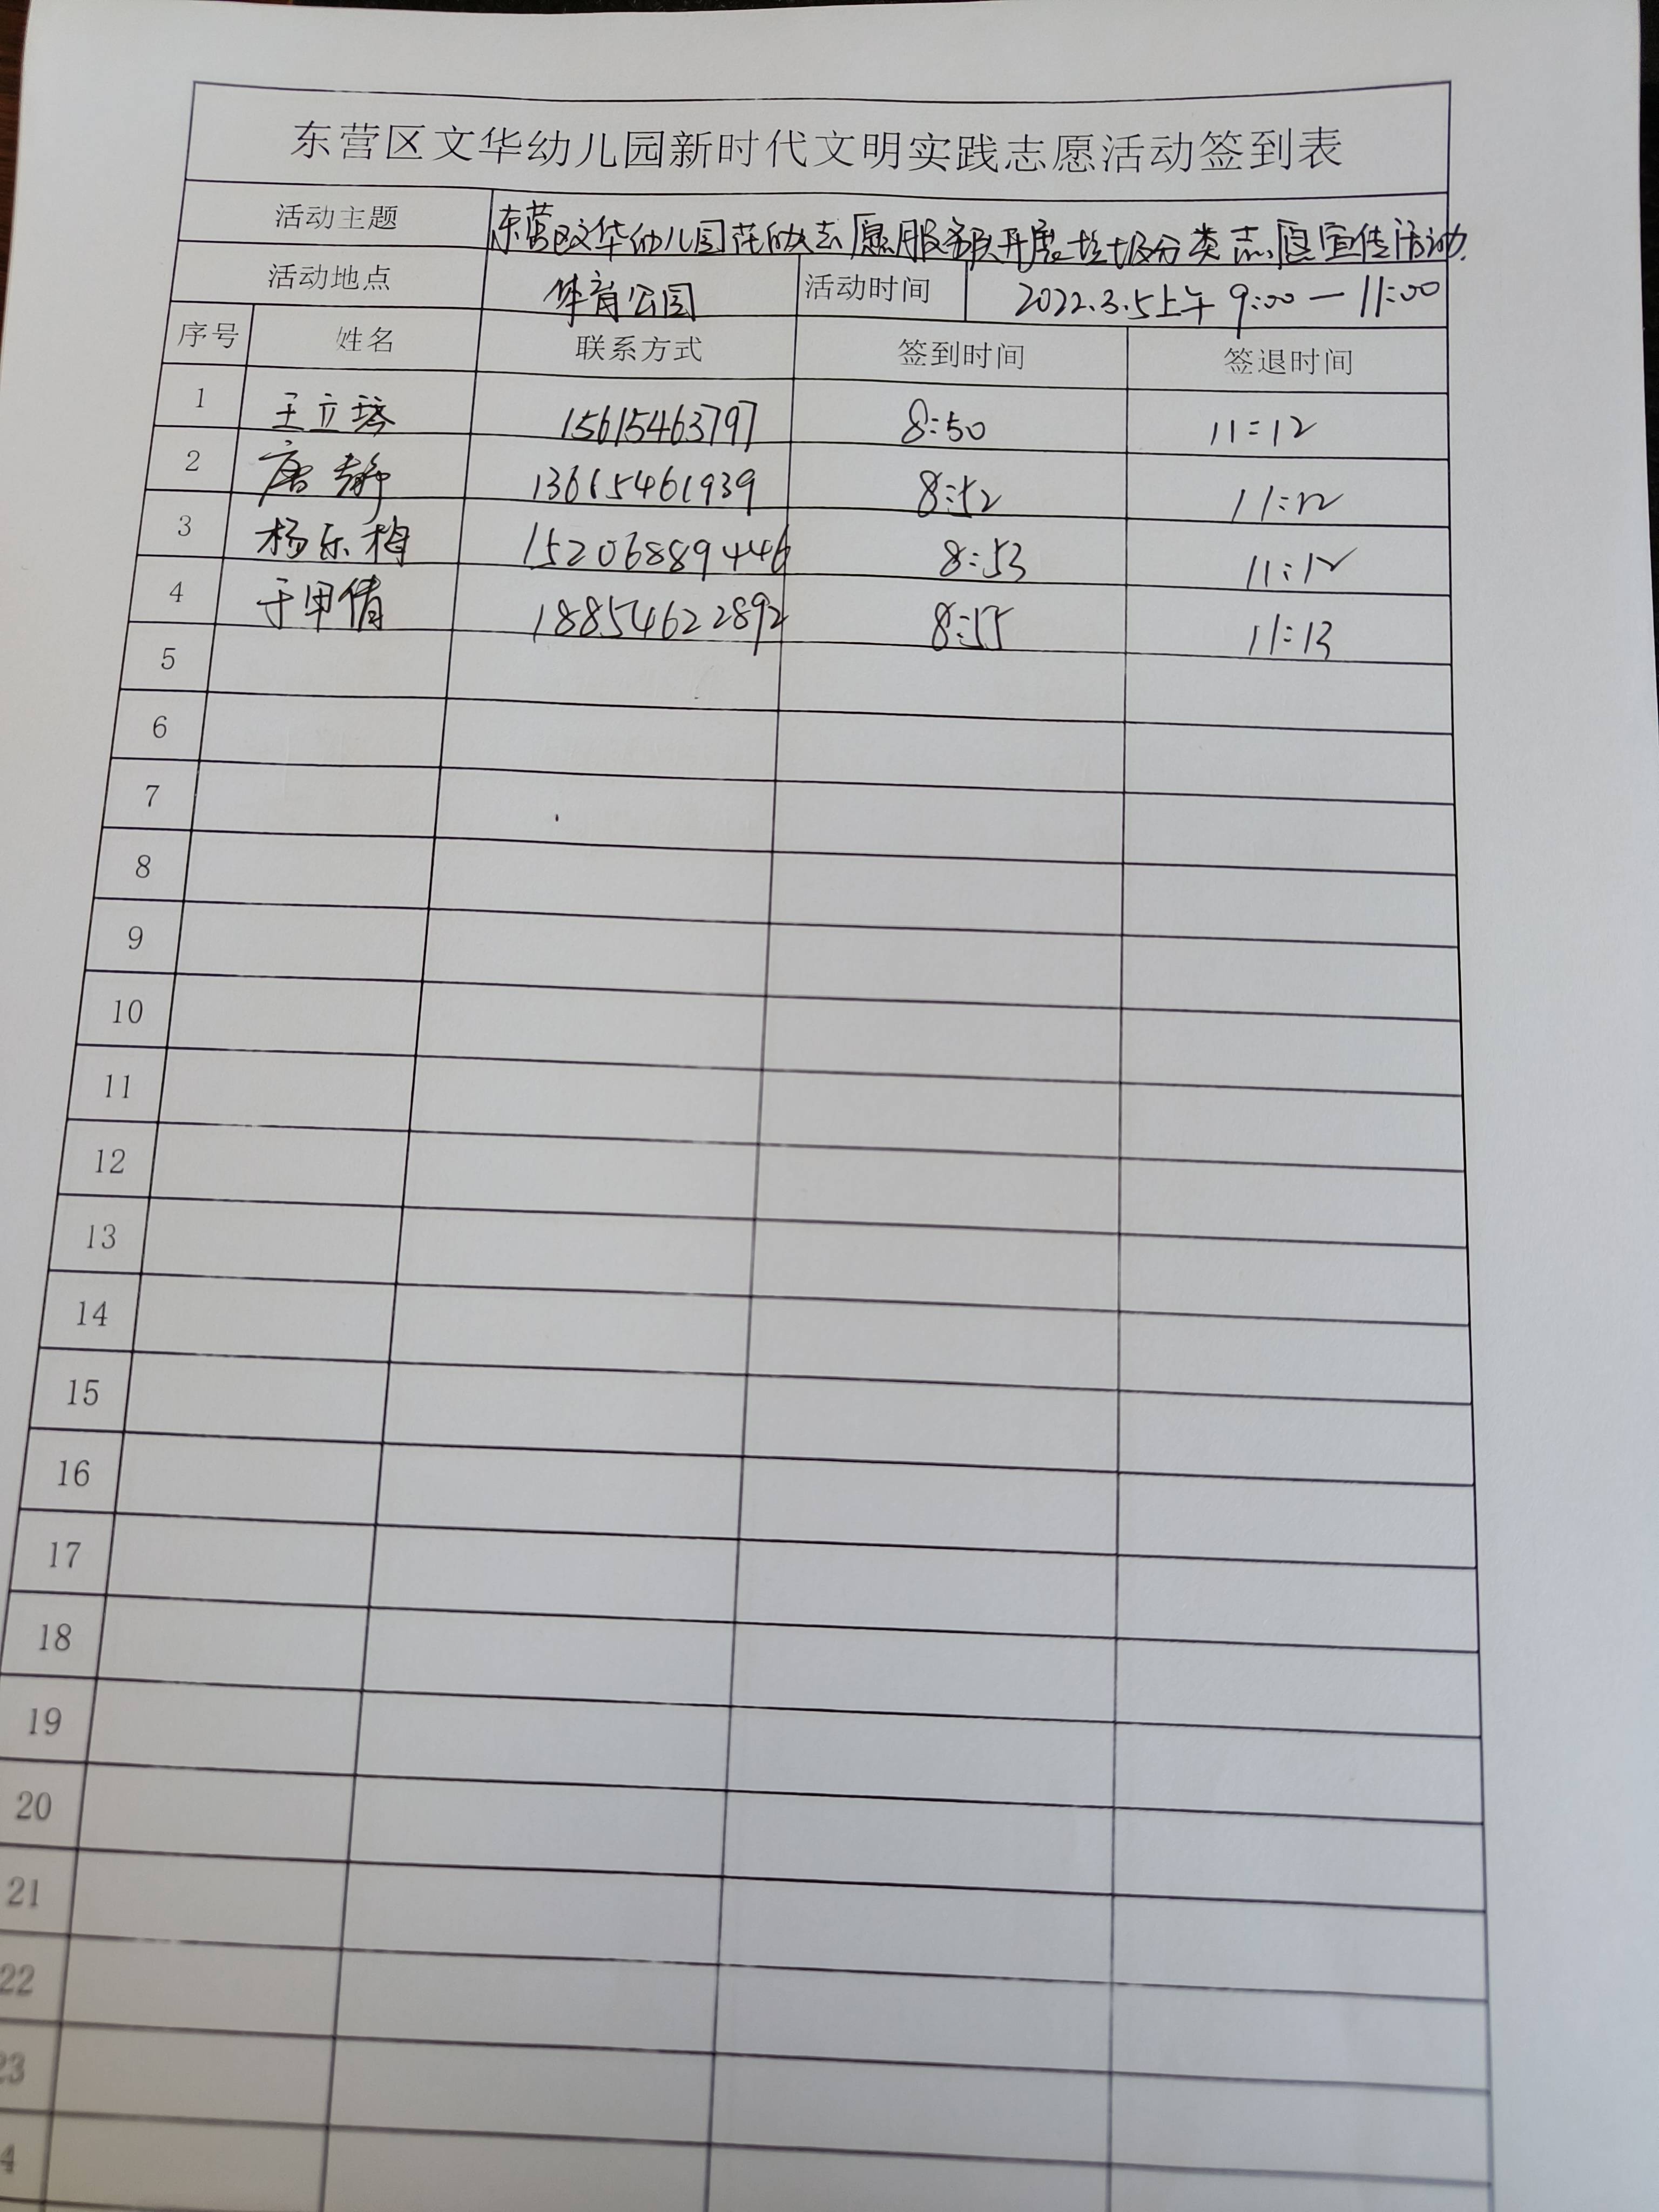 东营区文华幼儿园新时代文明实践志愿活动签到表
活动主题 东营区文华幼儿园花的秧志愿服务队开展垃圾分类志愿宣传活动.
活动地点 体育公园 活动时间 2022.3.5上午 9:00—11:00
序号 姓名 联系方式 签到时间 签退时间
1 王立琴 15615463797 8:50 11:12
2 唐静 13615461939 8:52 11:12
3 杨乐梅 15206889446 8:53 11:12
4 于甲倩 18854622892 8:55 11:13
5
6
7
8
9
10
11
12
13
14
15
16
17
18
19
20
21
22
23
4